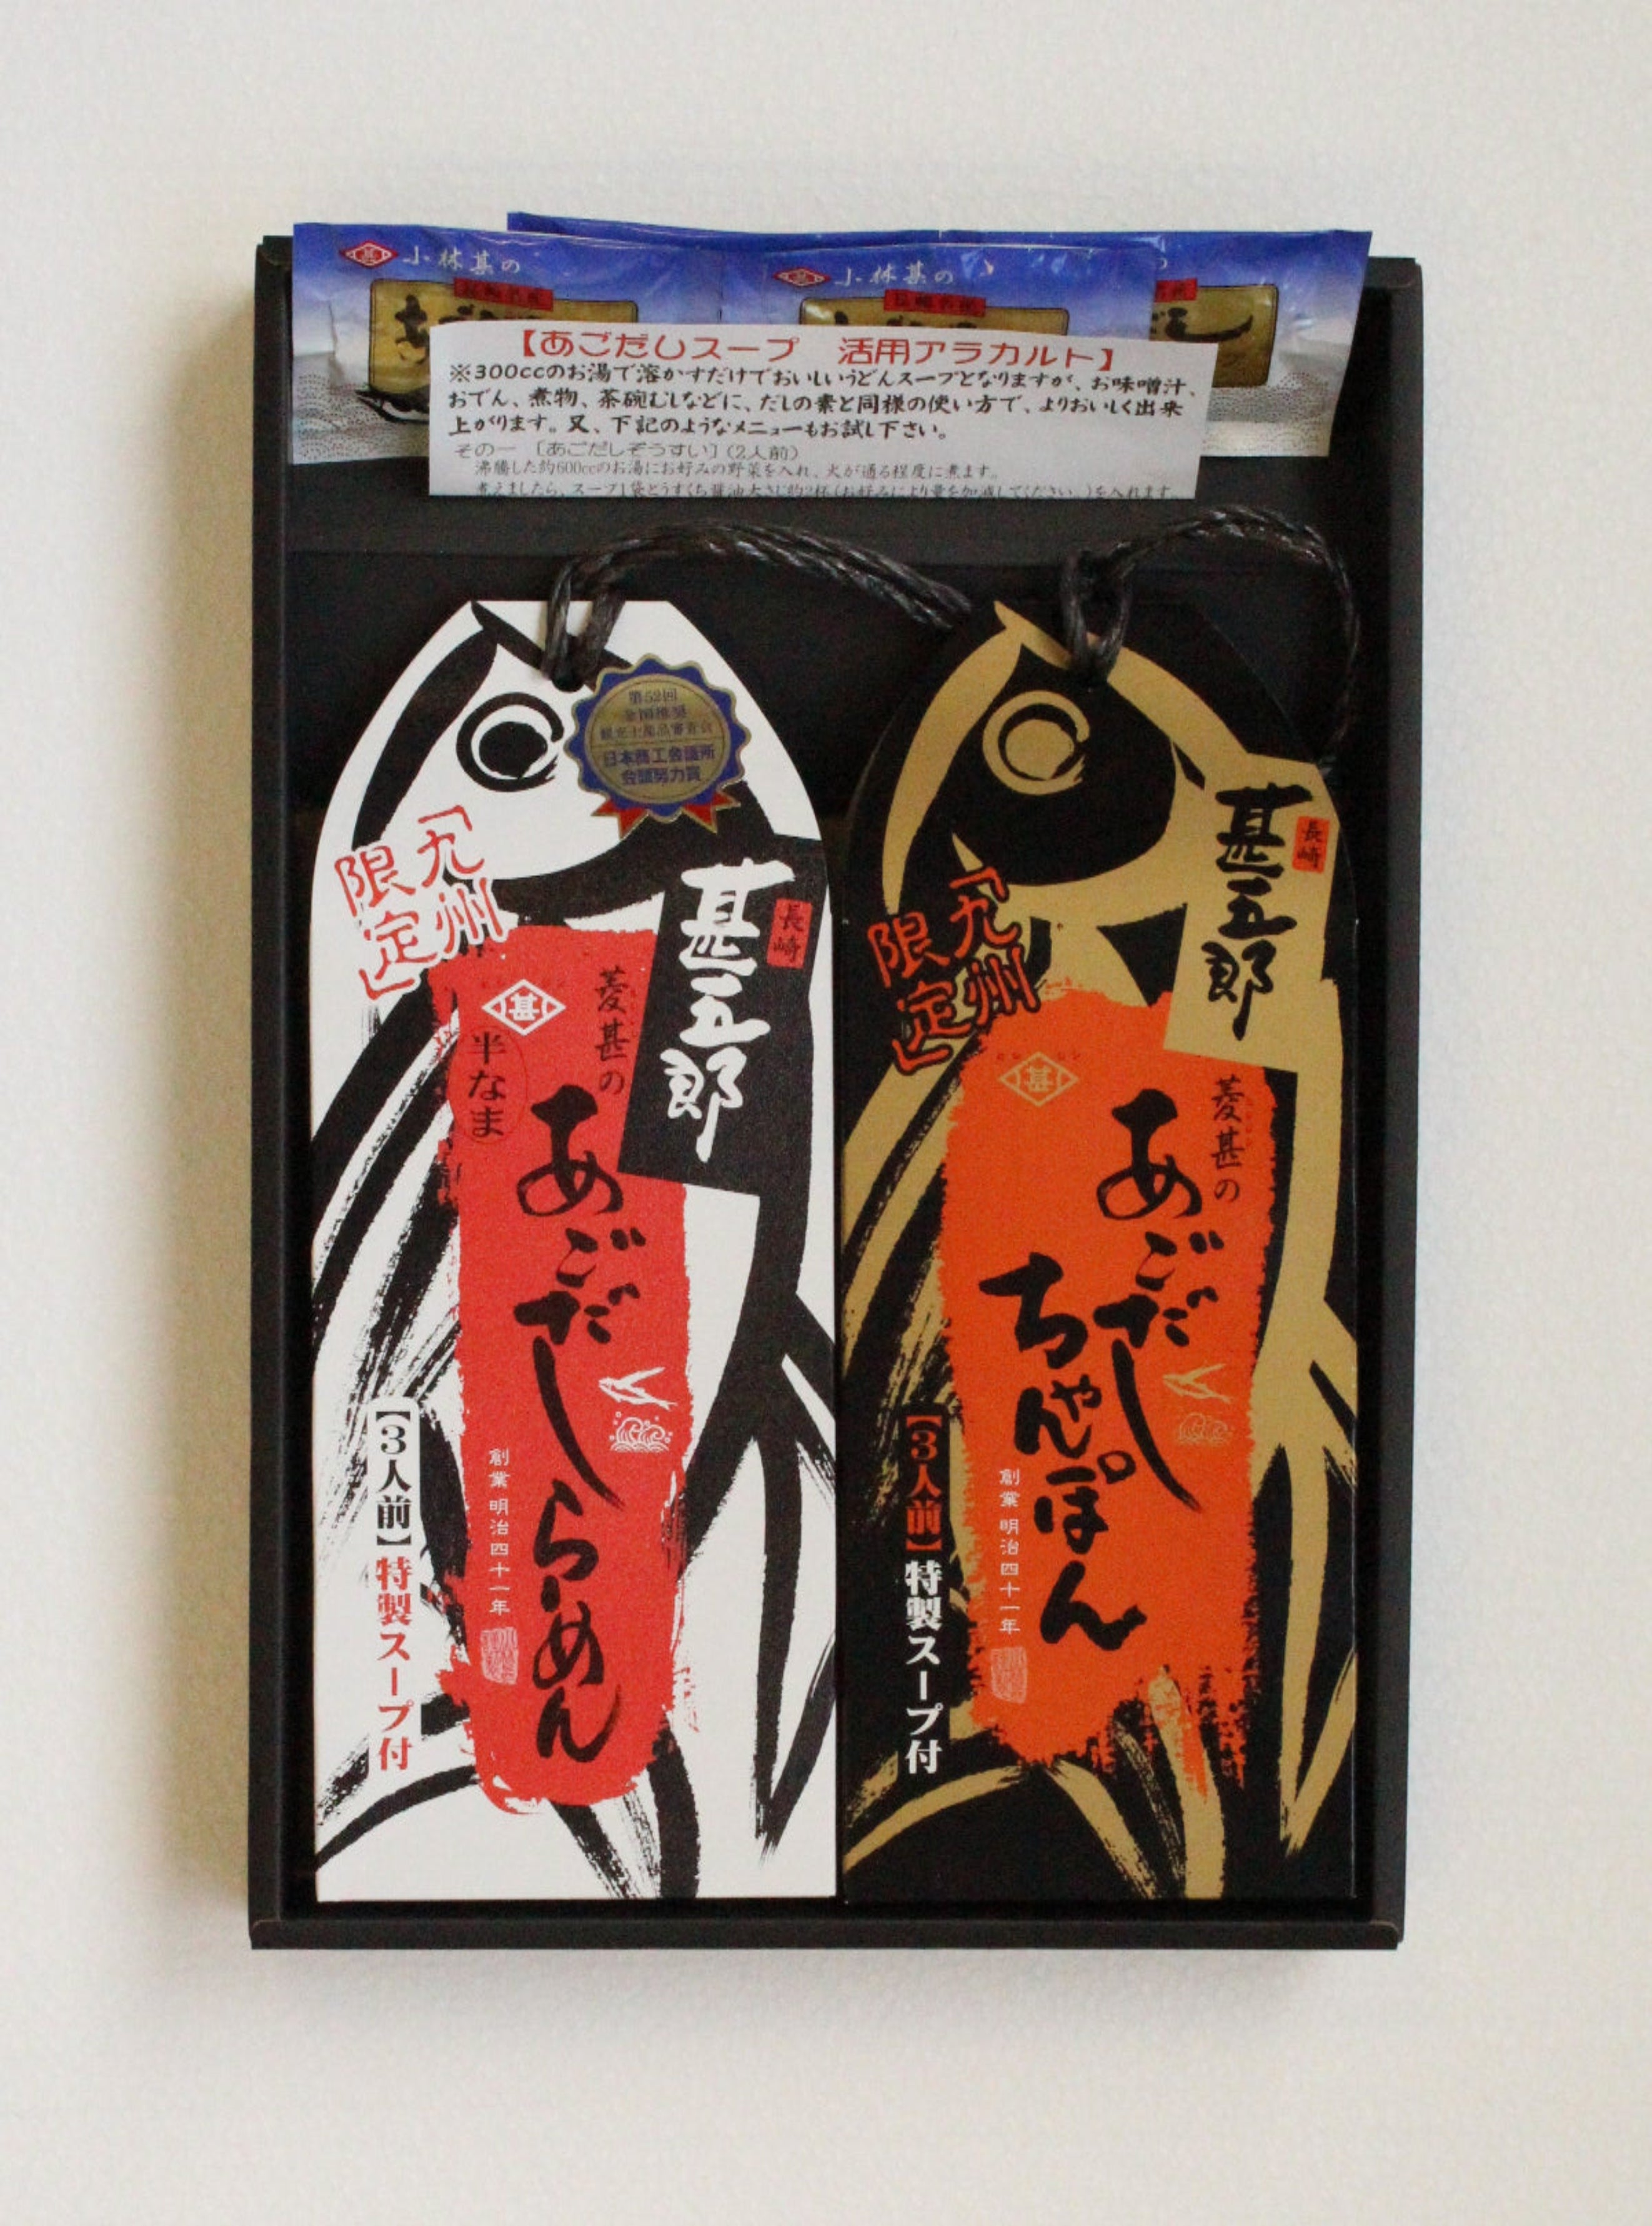 小林甚の
小林甚の
【あごだしスープ　活用アラカルト】
※300ccのお湯で溶かすだけでおいしいうどんスープとなりますが、お味噌汁、
おでん、煮物、茶碗むしなどに、だしの素と同様の使い方で、よりおいしく出来
上がります。又、下記のようなメニューもお試し下さい。
その一 〔あごだしぞうすい〕(2人前)
沸騰した約600ccのお湯にお好みの野菜を入れ、火が通る程度に煮ます。
煮えましたら、スープ1袋とうすくち醤油大さじ約2杯(お好みにより量を加減してください。)を入れます。
第52回
全国推奨
観光土産品審査会
日本商工会議所
会頭努力賞
「九州
限定」
長崎
甚五郎
甚
半なま
菱甚の
あごだしらーめん
創業明治四十一年
【3人前】特製スープ付
「九州
限定」
長崎
甚五郎
甚
菱甚の
あごだし
ちゃんぽん
創業明治四十一年
【3人前】特製スープ付